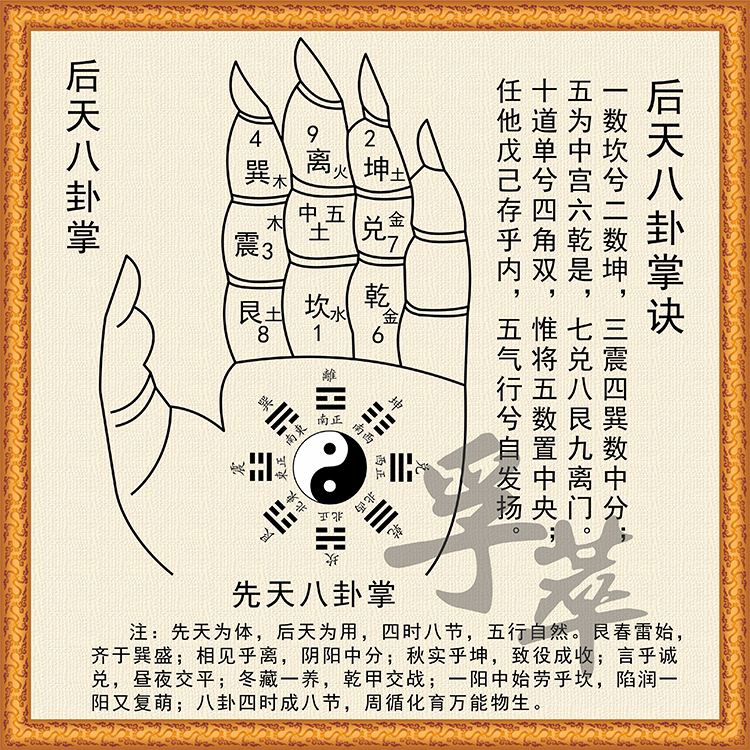 后天八卦掌
后天八卦掌诀
一数坎兮二数坤，三震四巽数中分；
五为中宫六乾是，七兑八艮九离门。
十道单兮四角双，惟将五数置中央；
任他戊己存乎内，五气行兮自发扬。
4
巽木
9
离火
2
坤土
木
震3
中五
土
金
兑7
艮土
8
坎水
1
乾金
6
離
南正
巽
南東
坤
南西
震
東正
兌
西正
艮
北東
乾
北西
坎
北正
孚萃
先天八卦掌
注：先天为体，后天为用，四时八节，五行自然。艮春雷始，
齐于巽盛；相见乎离，阴阳中分；秋实乎坤，致役成收；言乎诚
兑，昼夜交平；冬藏一养，乾甲交战；一阳中始劳乎坎，陷润一
阳又复萌；八卦四时成八节，周循化育万能物生。